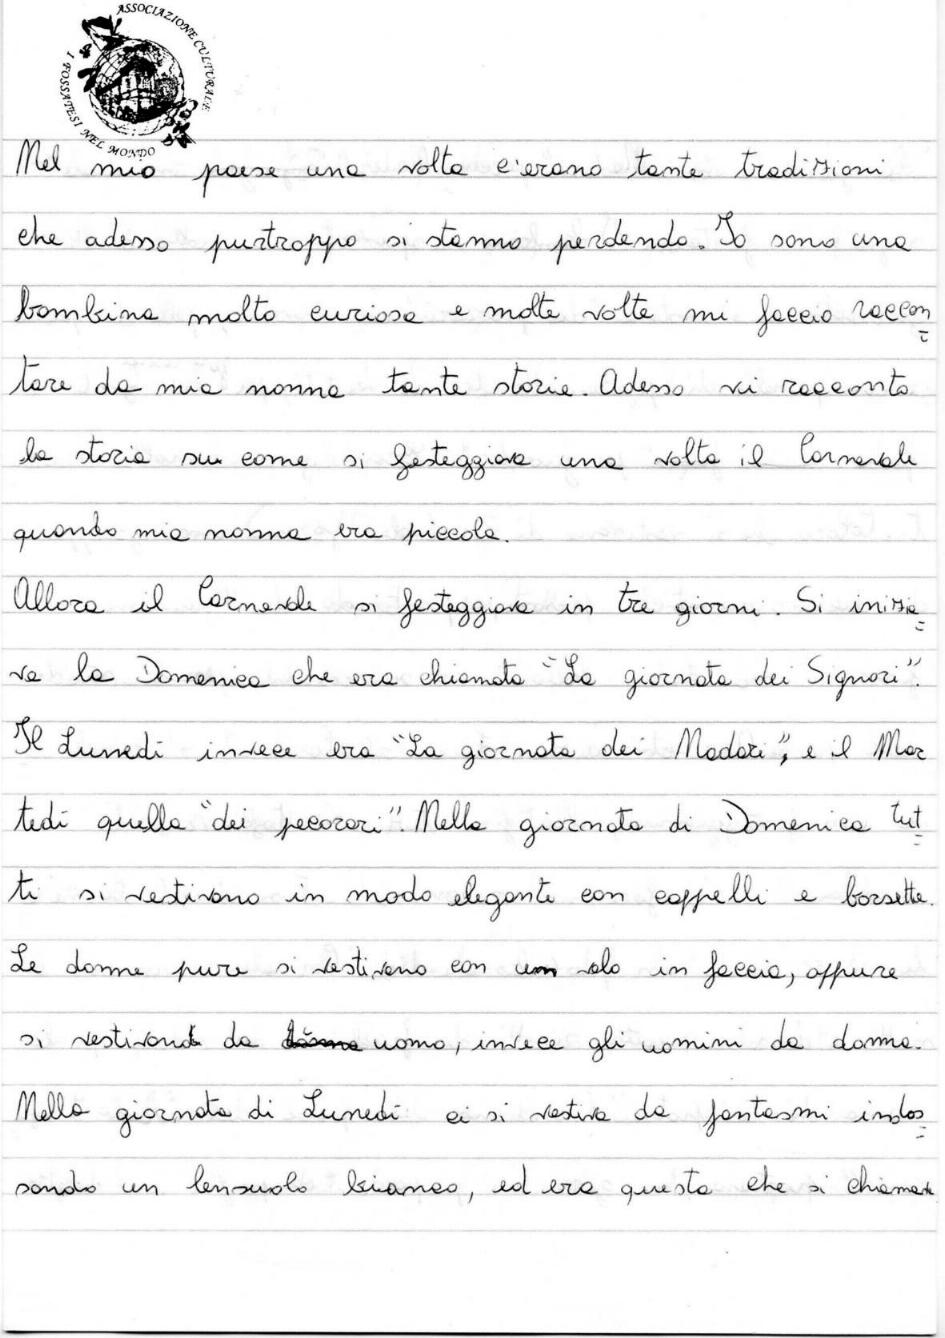 ASSOCIAZIONE CULTURALE
I FOSSATESI NEL MONDO
Nel mio paese una volta c'erano tante tradizioni
che adesso purtroppo si stanno perdendo. Io sono una
bambina molto curiosa e molte volte mi faccio raccon=
tare da mia nonna tante storie. Adesso vi racconto
la storia su come si festeggiava una volta il Carnevale
quando mia nonna era piccola.
Allora il Carnevale si festeggiava in tre giorni. Si inizia=
va la Domenica che era chiamata "La giornata dei Signori".
Il Lunedì invece era "La giornata dei Madari", e il Mar
tedì quella "dei pecorari". Nella giornata di Domenica tut=
ti si vestivano in modo elegante con cappelli e borsette.
Le donne pure si vestivano con un velo in faccia, oppure
si vestivano da uomo, invece gli uomini da donna.
Nella giornata di Lunedì ci si vestiva da fantasmi indos=
sando un lensuolo bianco, ed era questa che si chiamava